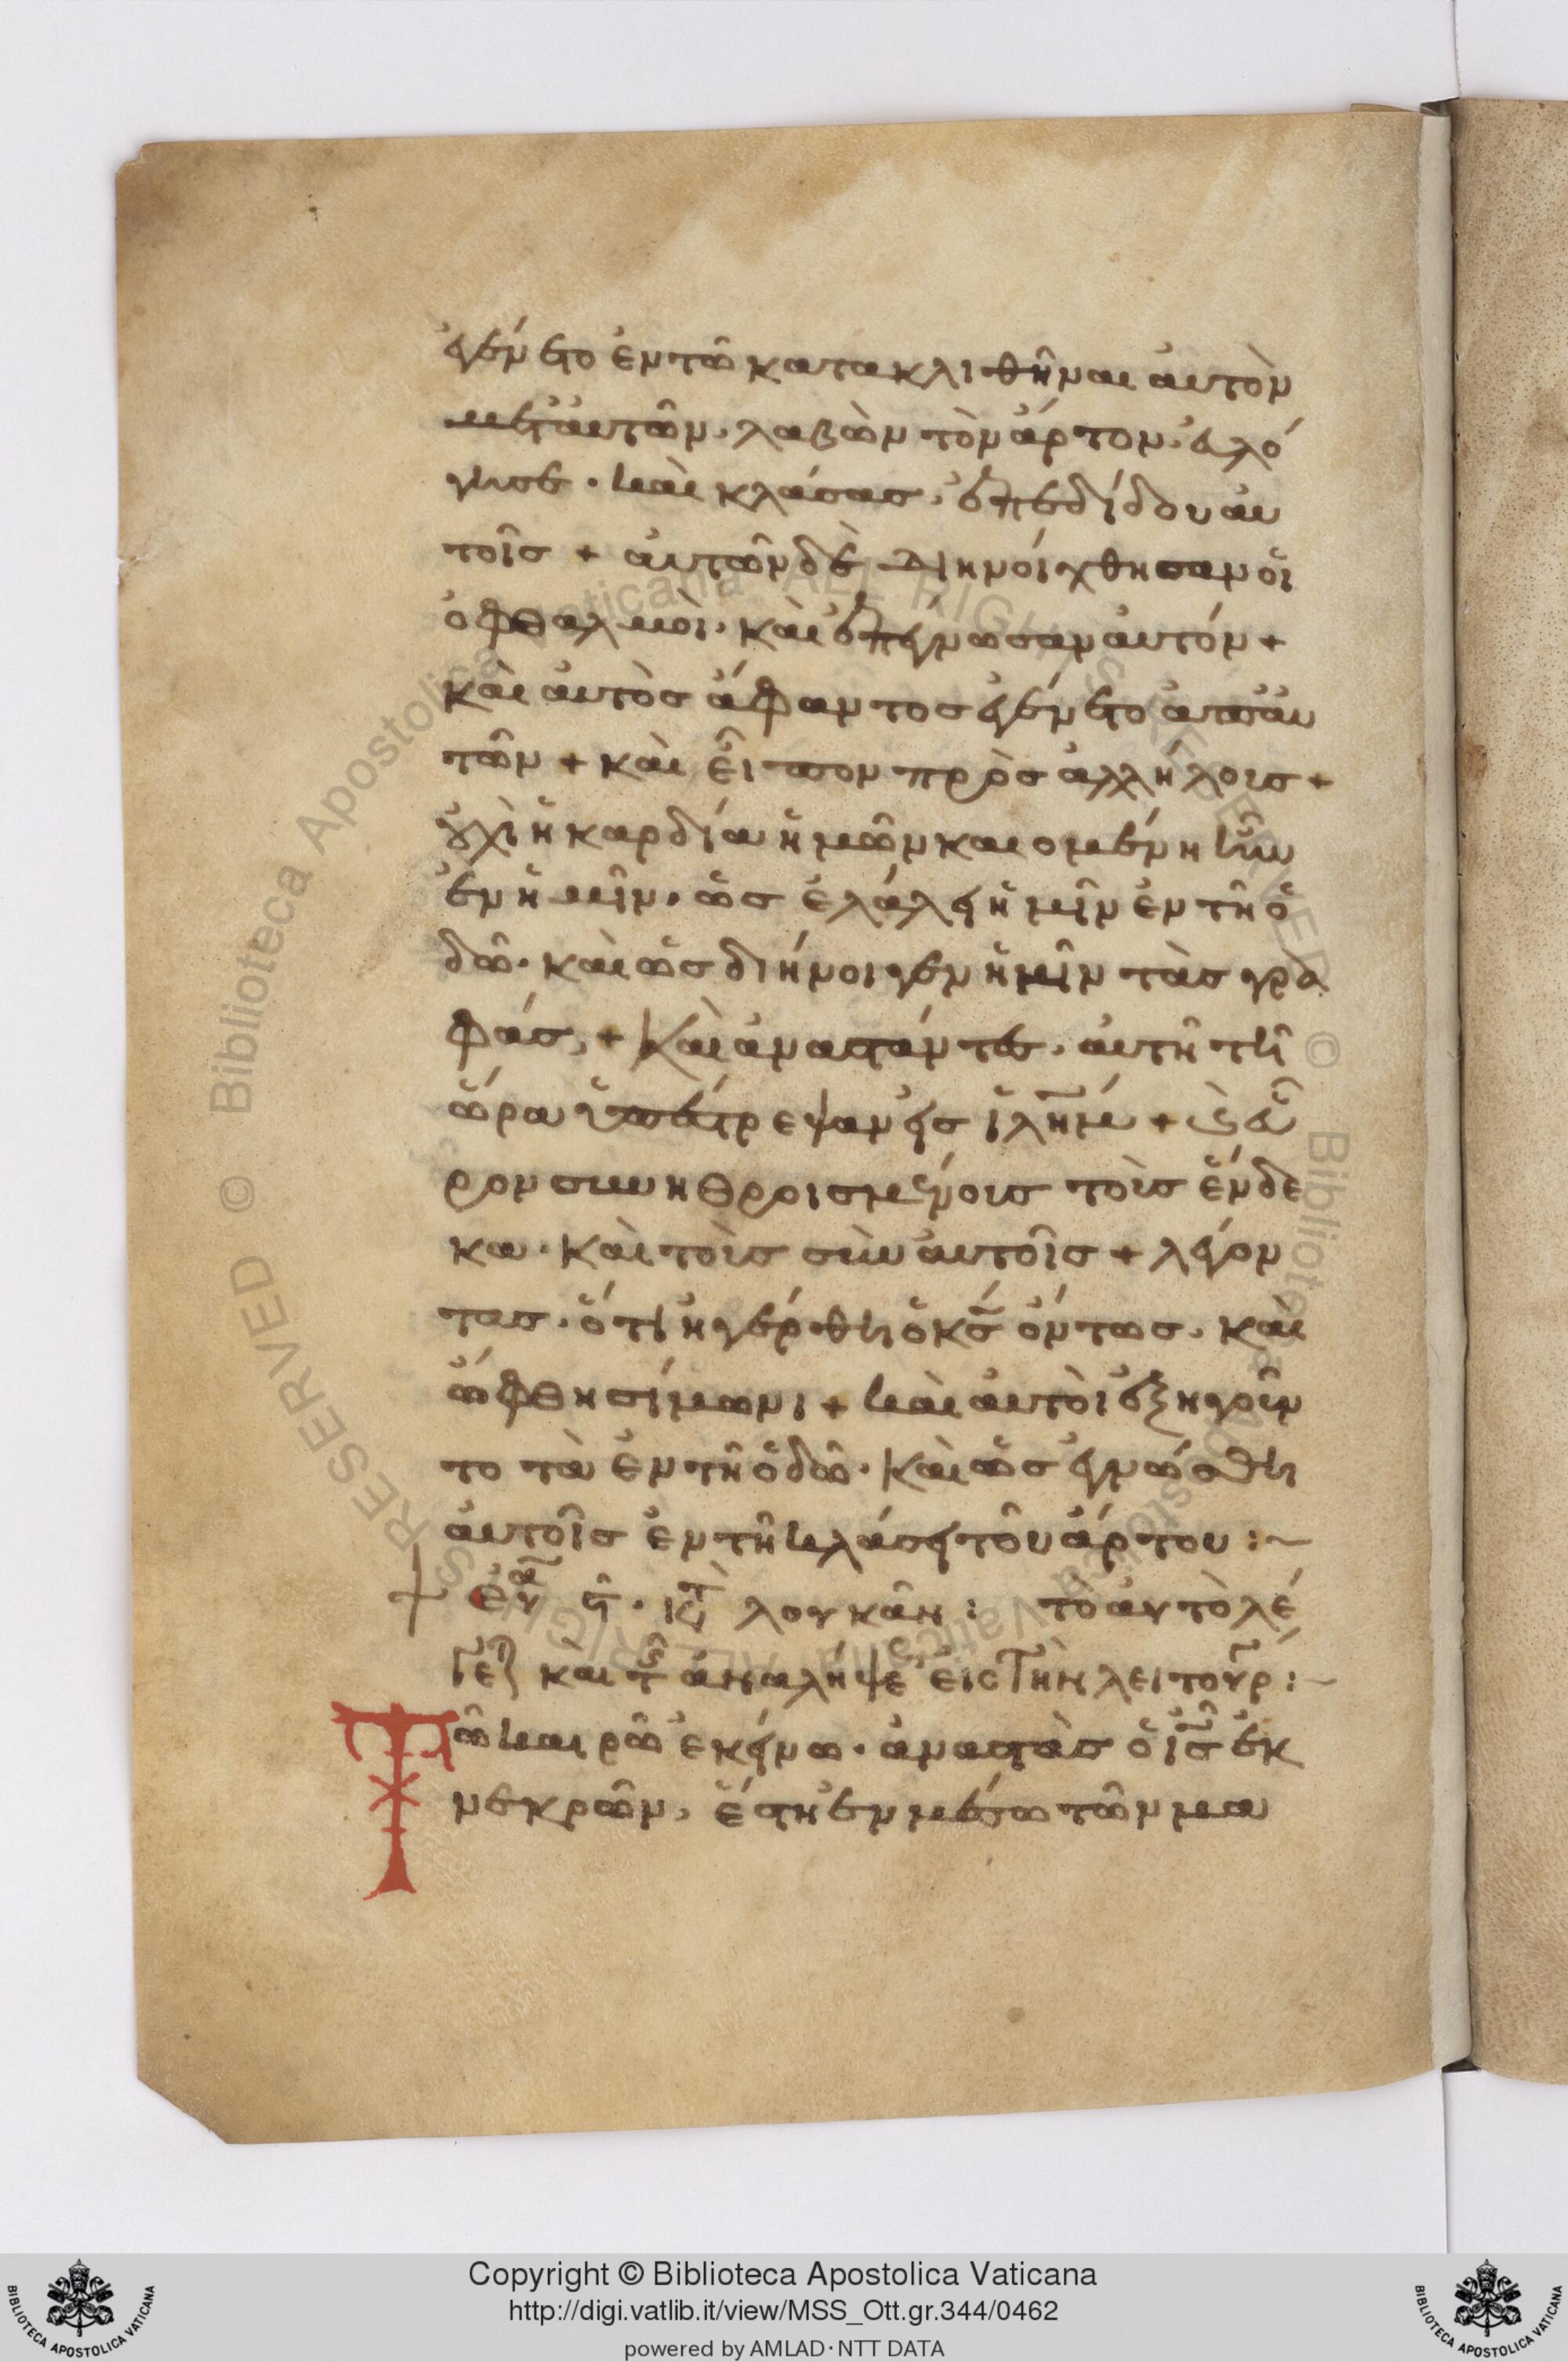 ἐγένετο ἐν τῶ κατακλιθῆναι αὐτὸν
μετ' αὐτῶν, λαβὼν τὸν ἄρτον, εὐλό
γησε · καὶ κλάσας, ἐπεδίδου αυ
τοῖς + αὐτῶν δὲ διηνοίχθησαν οἱ
ὀφθαλμοὶ · καὶ ἐπέγνωσαν αὐτόν +
καὶ αὐτὸς ἄφαντος ἐγένετο ἀπ' αυ
τῶν + καὶ εἶπον πρὸς ἀλλήλους +
οὐχὶ ἡ καρδία ἡμῶν καιομένη ἦν
ἐν ἡμῖν · ὡς ἐλάλει ἡμῖν ἐν τῆ ὁ
δῶ · καὶ ὡς διήνοιγεν ἡμῖν τὰς γρα
φάς, + Καὶ ἀναστάντες, αὐτῆ τῆ
ὥρα ὑπέστρεψαν εἰς ἰλῆμ + καὶ εὗ
ρον συνηθροισμένους τοὺς ἕνδε
κα · καὶ τοὺς σὺν αὐτοῖς + λέγον
τας · ὅτι ἠγέρθη ὁ κς ὄντως, καὶ
ὤφθη σίμωνι + καὶ αὐτοὶ ἐξηγοῦν
το τὰ ἐν τῆ ὁδῶ · Καὶ ὡς ἐγνώσθη
αὐτοῖς ἐν τῆ κλάσει τοῦ ἄρτου :~
+ εὐα λουκᾶν : τὸ αὐτὸ λέ
γε καὶ ἀναλήψε εἰς τὴν λειτουρ :~
Τῶ καιρῶ ἐκείνω · ἀναστὰς ὁ ις ἐκ
νεκρῶν, ἔστη ἐν μέσω τῶν μα
Copyright © Biblioteca Apostolica Vaticana
http://digi.vatlib.it/view/MSS_Ott.gr.344/0462
powered by AMLAD·NTT DATA